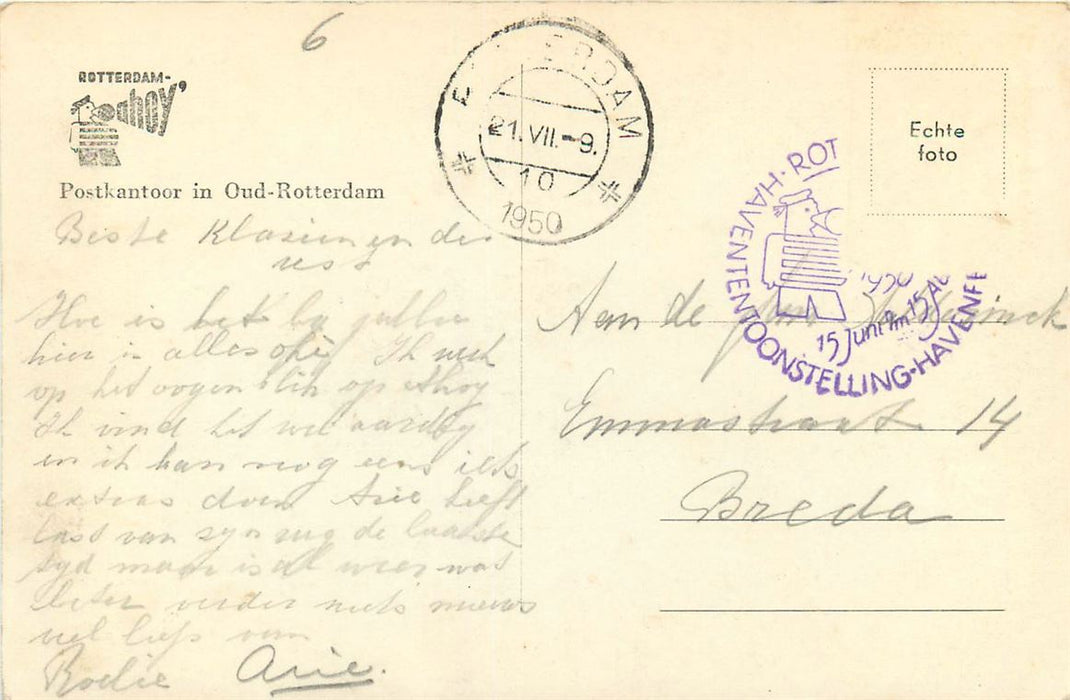 6
ROTTERDAM-
ahoy'
Postkantoor in Oud-Rotterdam
ERDAM
21.VII.-9.
10
1950
Echte
foto
HAVENTENTOONSTELLING-HAVEN
ROT
1950
15 Juni t/m 15 Au
Beste Klasien en de
rest
Hoe is het by jullie
hier is alles oké. Ik
op het oogenblik op Ahoy
Ik vind het wel aardig
en ik kan nog eens iets
extras doen Arie heeft
last van zyn rug de laatste
tyd maar is al weer wat
beter verder niets nieuws
veel liefs van
Roelie Arie.
Aan de fam
Emmastraat 14
Breda